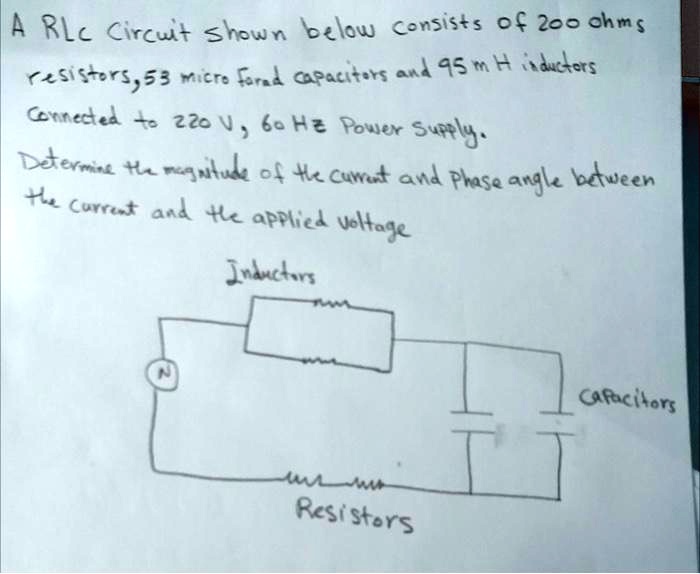 A RLC Circuit shown below consists of 200 ohms
resistors, 53 micro Farad capacitors and 95 mH inductors
Connected to 220 V, 60 Hz Power Supply.
Determine the magnitude of the current and Phase angle between
the current and the applied voltage
Inductors
N
Capacitors
Resistors